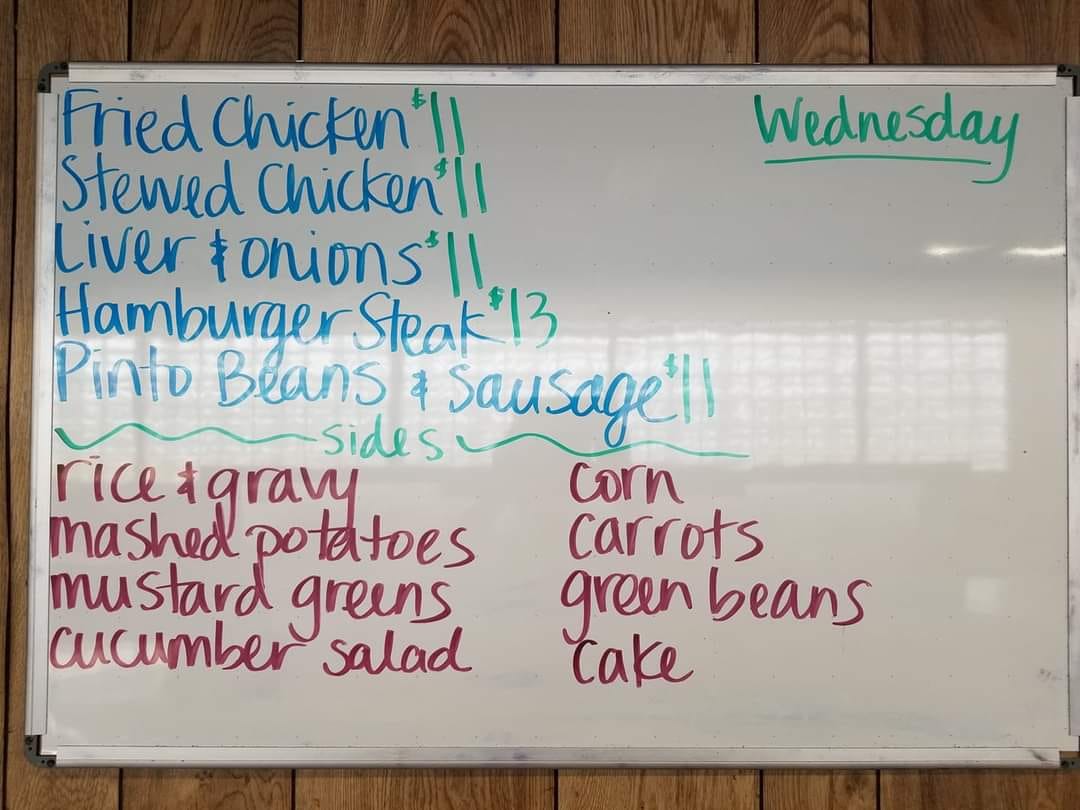 Wednesday
Fried Chicken $11
Stewed Chicken $11
Liver & onions $11
Hamburger Steak $13
Pinto Beans & Sausage $11
sides
rice & gravy
mashed potatoes
mustard greens
cucumber salad
corn
carrots
green beans
cake